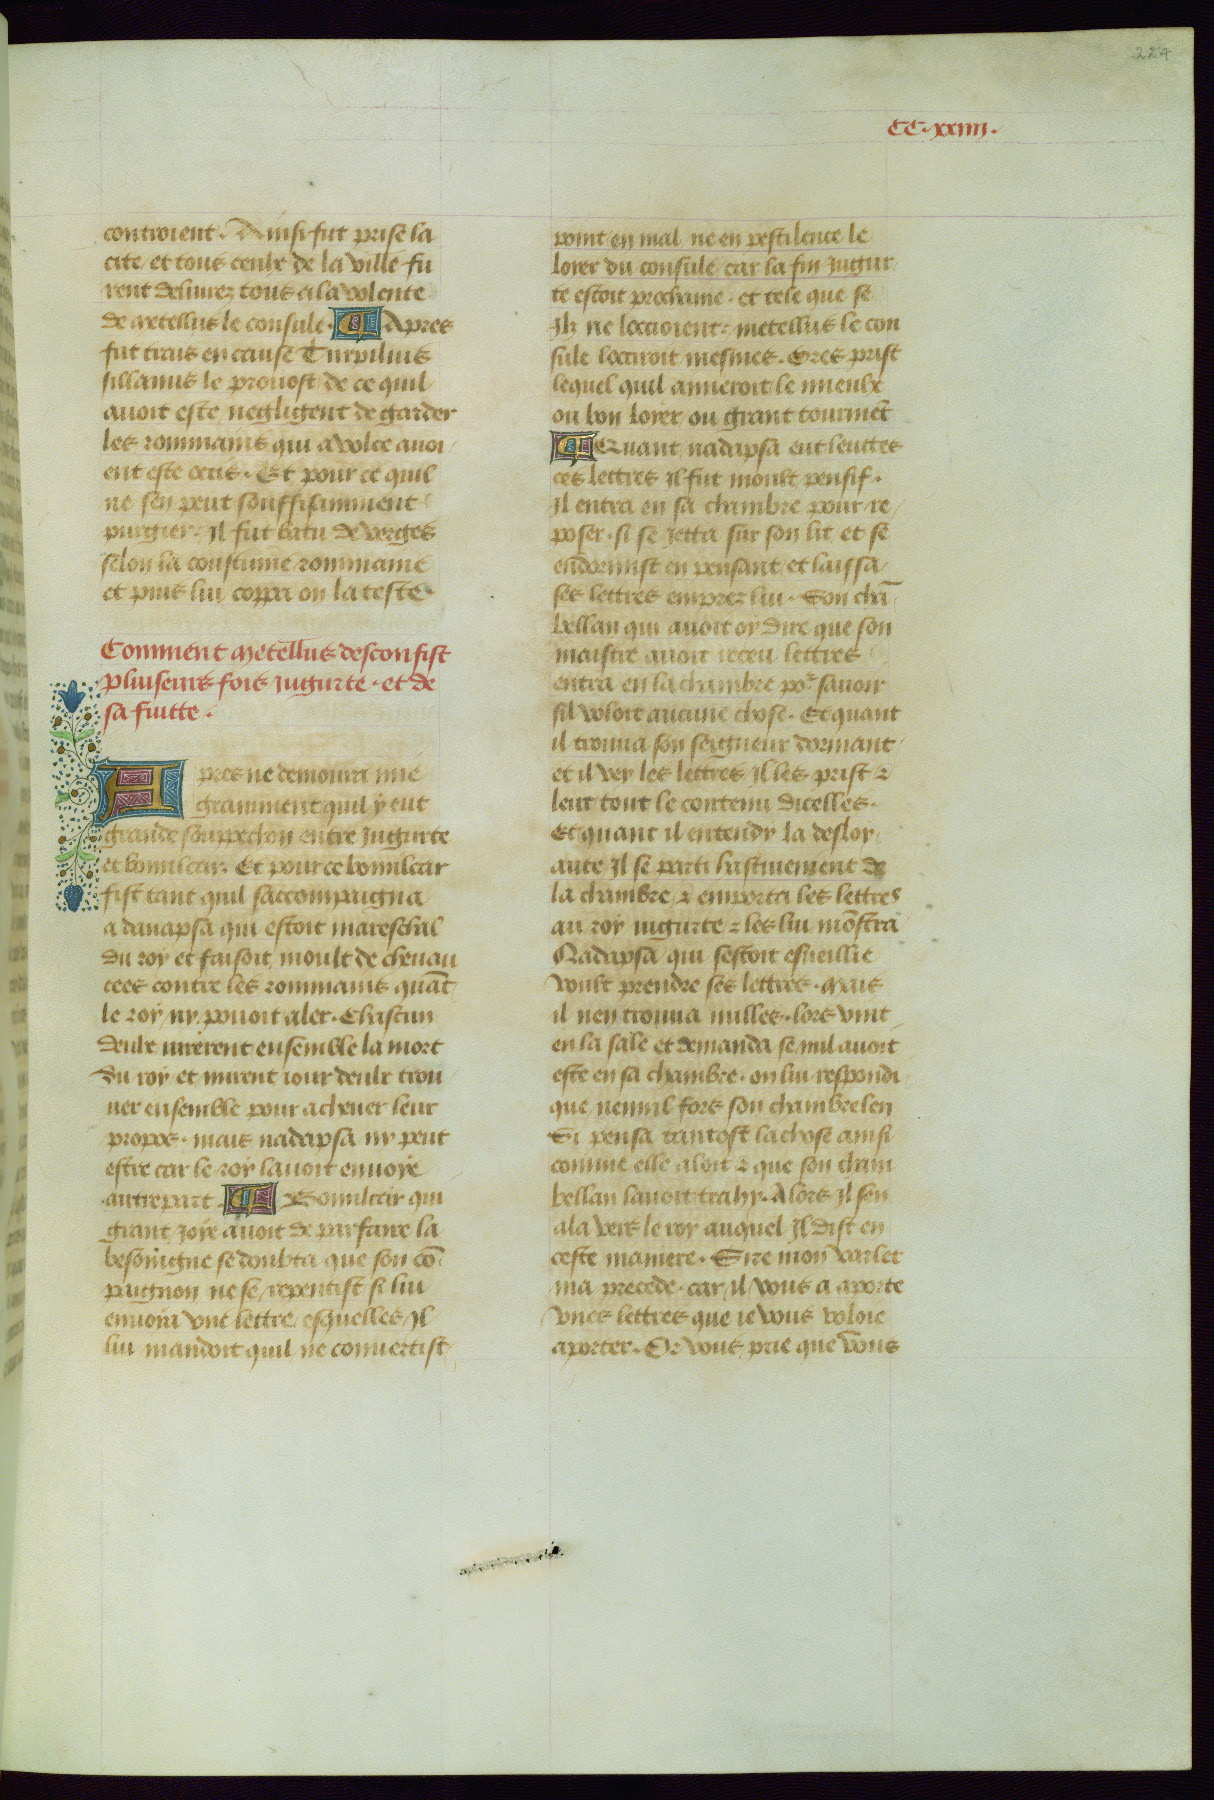 224
CC·xxiiij·
controient· Ainsi fut prise la
cite et tous ceulx de la ville fu
rent deliurez tous a la volente
de metellus le consule· Apres
fut trais en cause Turpilius
sillanus le prouost de ce quil
auoit este negligent de garder
les rommains qui a volce auoi
ent este occis· Et pour ce quil
ne sen peut souffisamment
purgier· Il fut batu de verges
selon la coustume rommaine
et puis lui coppa on la teste·
Comment metellus desconfist
pluiseurs fois iugurte· et de
sa fuitte·
Apres ne demoura mie
gramment quil y eut
grande souppechon entre iugurte
et bomilcar· Et pour ce bomilcar
fist tant quil saccompaigna
a danapsa qui estoit mareschal
du roy et faisoit moult de cheuau
cees contre les rommains quāt
le roy ny pouoit aler· Chascun
deulx iurerent ensemble la mort
du roy et mirent iour deulx trou
uer ensemble pour acheuer leur
propos· mais nadapsa ny peut
estre car le roy lauoit enuoye
autrepart· Bomilcar qui
grant ioye auoit de parfaire la
besoingne se doubta que son cō
paignon ne se repentist si lui
enuoia vne lettre esquelles il
lui mandoit quil ne conuertist
point en mal ne en pestilence le
loyer du consule car la fin iugur
te estoit prochaine· et tele que se
Ilz ne loccioient· metellus le con
sule locciroit mesmes· Ores prist
lequel quil aimeroit le mieulx
ou bon loyer ou grant tourmēt
Quant nadapsa eut leuttes
ces lettres il fut moult pensif·
Il entra en sa chambre pour re
poser· si se ietta sur son lit et se
endormist en pensant et laissa
ses lettres emprez lui· Son chā
bellan qui auoit oy dire que son
maistre auoit receu lettres
entra en la chambre por sauoir
sil voloit aucune chose· Et quant
il trouua son seigneur dormant
et il vey les lettres Il les prist ⁊
leut tout le contenu dicelles·
Et quant il entendy la desloy
aute Il se parti hastiuement de
la chambre ⁊ emporta les lettres
au roy iugurte ⁊ les lui mōstra
Nadapsa qui sestoit esueillie
voult prendre ses lettres· mais
il nen trouua nulles· lors vint
en la sale et demanda se nul auoit
este en sa chambre· on lui respondi
que nennil fors son chambrelen
Si pensa tantost la chose ainsi
comme elle aloit ⁊ que son cham
bellan lauoit trahy· Alors Il sen
ala vers le roy auquel Il dist en
ceste maniere· Sire mon varlet
ma precede· car il vous a aporte
vnes lettres que ie vous voloie
aporter· Or vous prie que vous